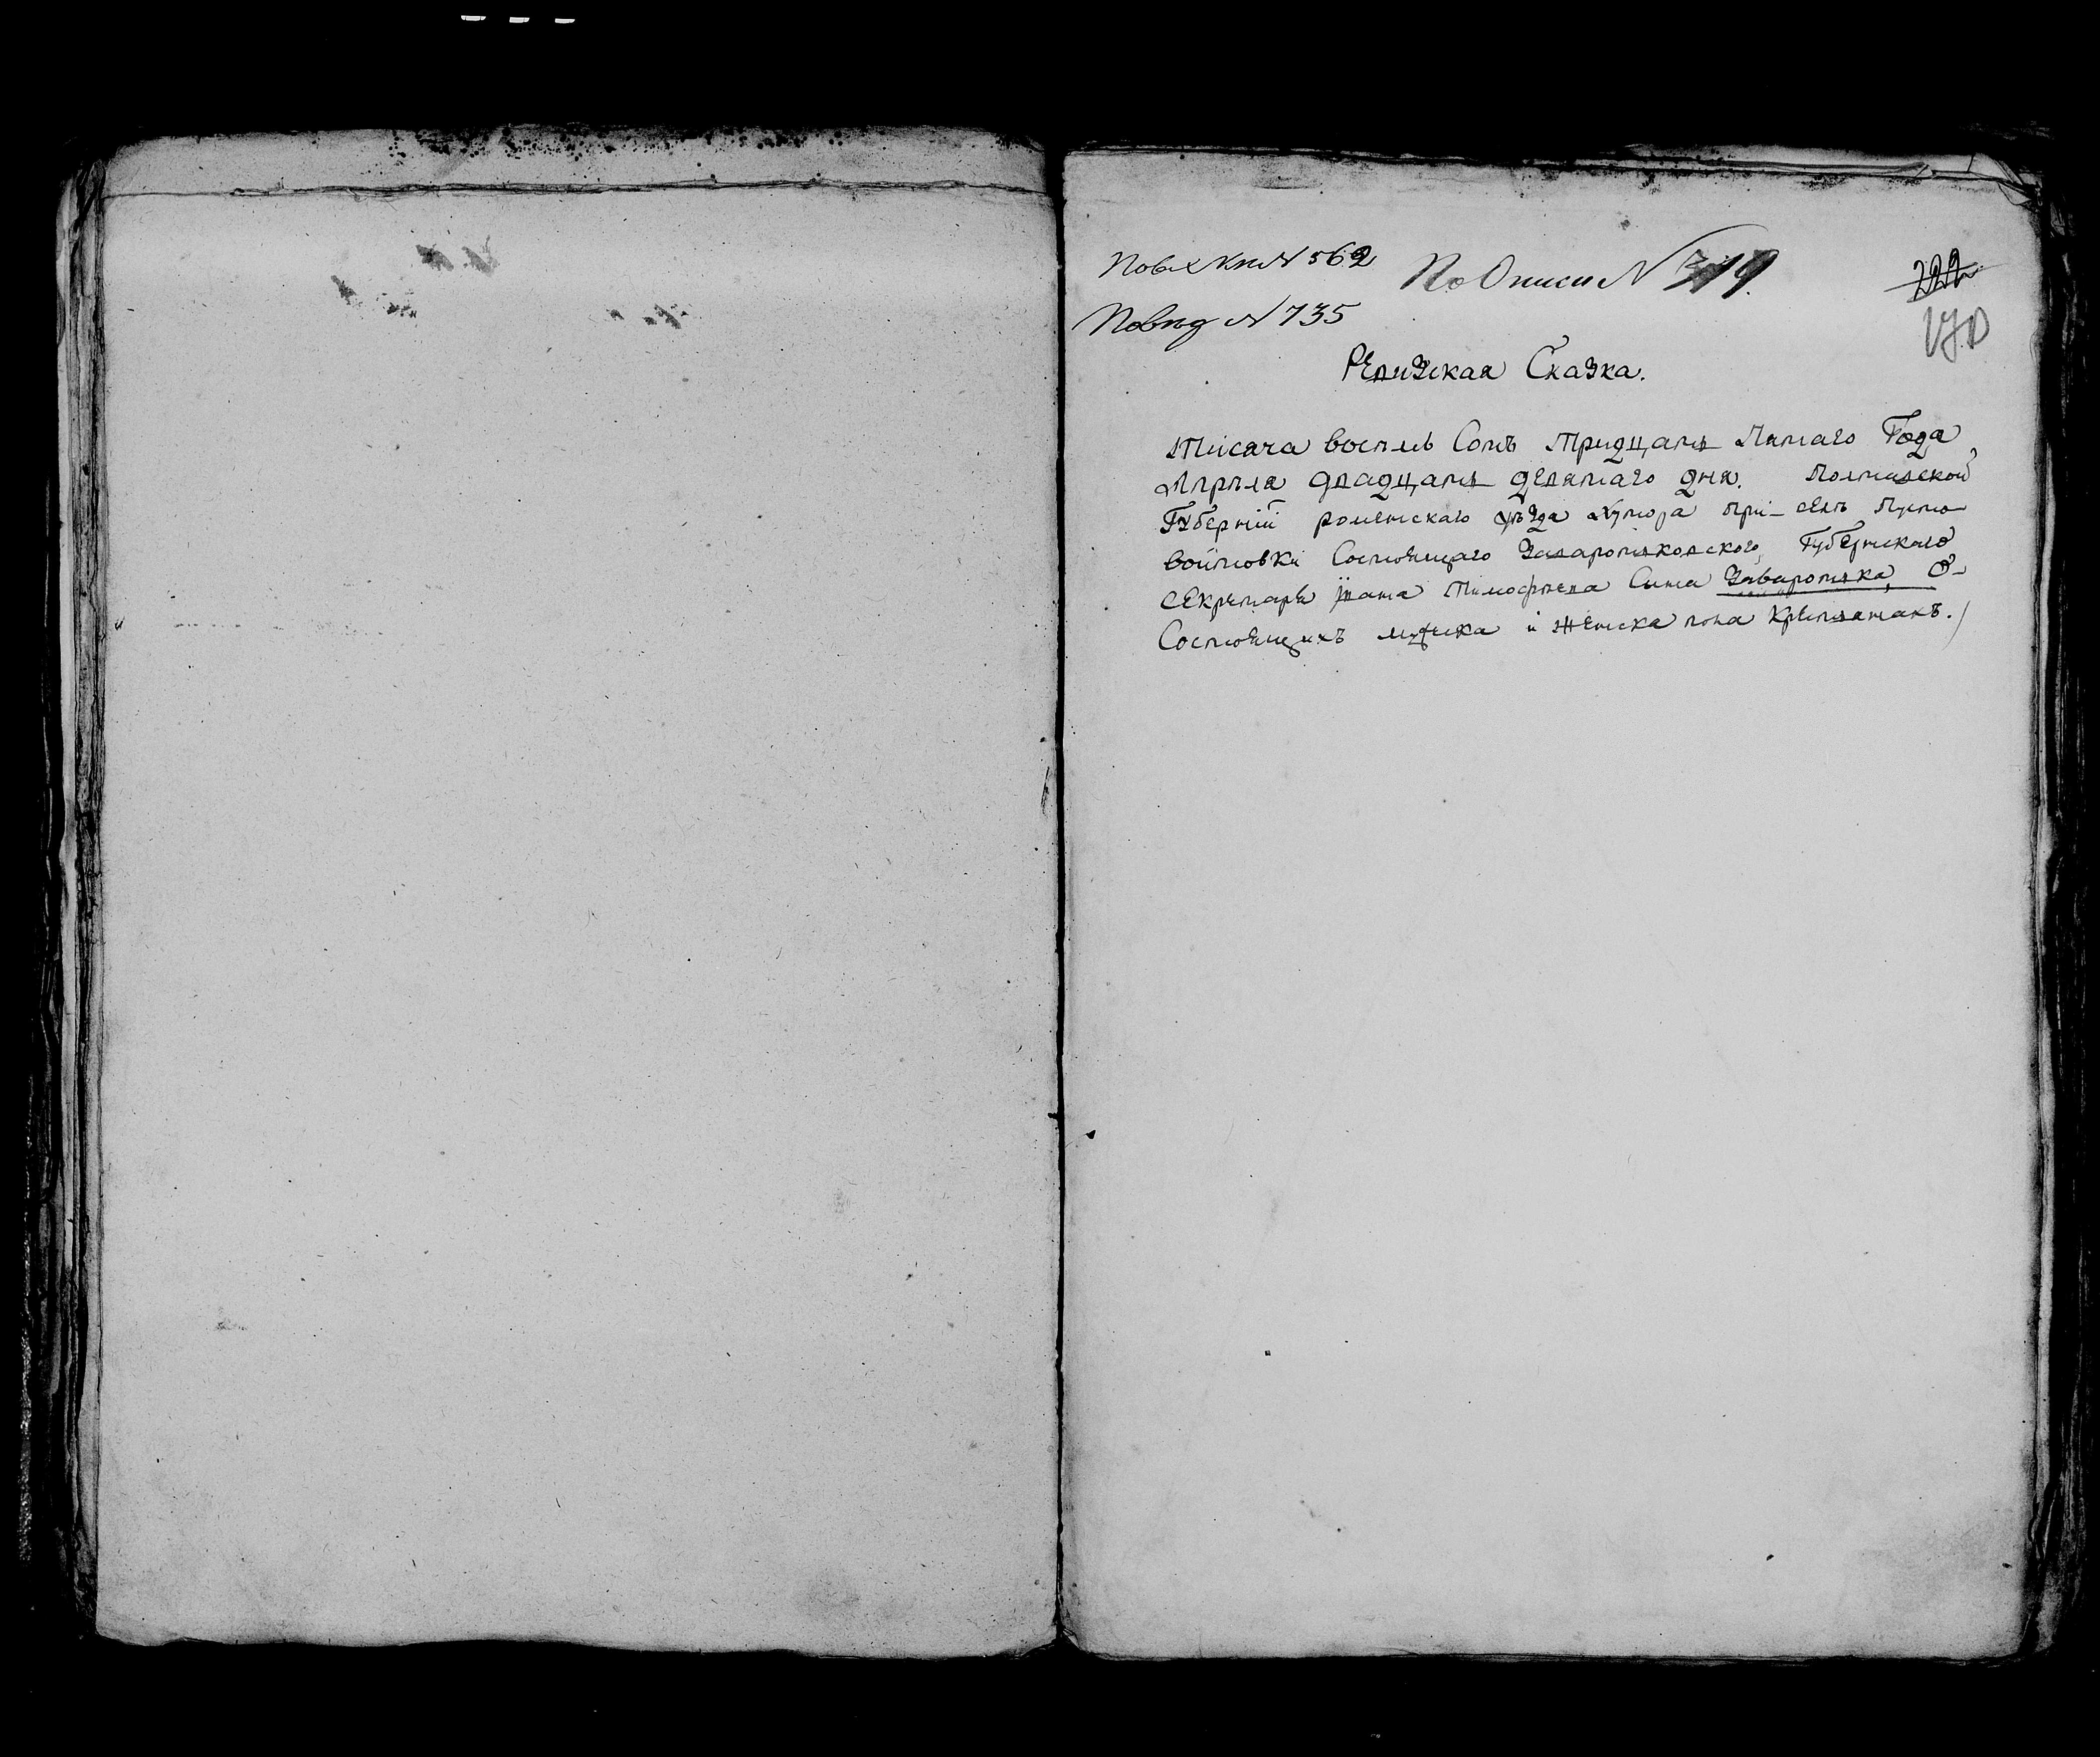 По вх кн № 562 По Описи № 319
По № 735
Ревизская Сказка.
Тисяча восемь Сотъ Тридцать Пятаго Года
Апреля двадцать девятаго дня. Полтавской
Губерніи роменскаго уѣзда хутора при селѣ Пусто
войтовки Состоящаго Заваротковского, Губернскаго
СЕкретаря Ивана Тимофѣева Сина Заваротька, О-
Состоящихъ мужска и Женска пола Крестьянахъ.